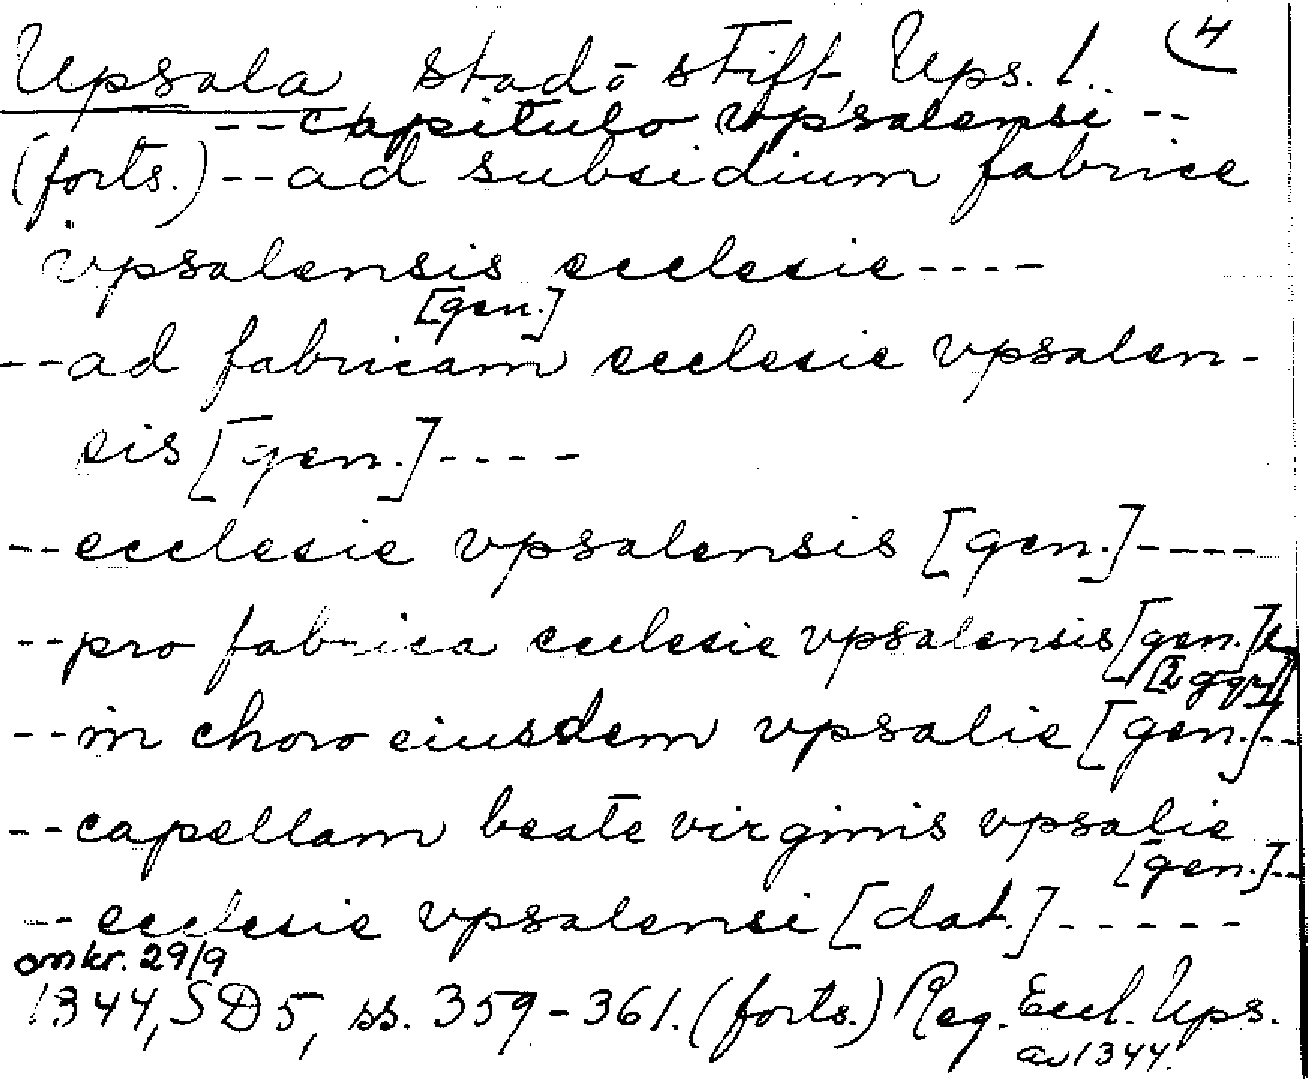 Upsala stad o stift, Ups. l. (4
--capitulo vpsalensi--
(forts.)--ad subsidium fabrice
vpsalensis ecclesie----
[gen.]
--ad fabricam ecclesie vpsalen-
sis [gen.]----
--ecclesie vpsalensis [gen.]----
--pro fabrica ecclesie vpsalensis [gen.]
[2 ggr]
--in choro eiusdem vpsalie [gen.]--
--capellam beate virginis vpsalie
[gen.]--
--ecclesie vpsalensi [dat.]-----
omkr. 29/9
1344, SD 5, ss. 359-361. (forts.) Reg. Eccl. Ups.
av 1344.